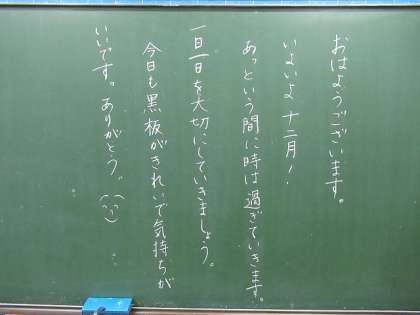 おはようございます。
いよいよ十二月！
あっという間に時は過ぎていきます。
一日一日を大切にしていきましょう。
今日も黒板がきれいで気持ちが
いいです。ありがとう。